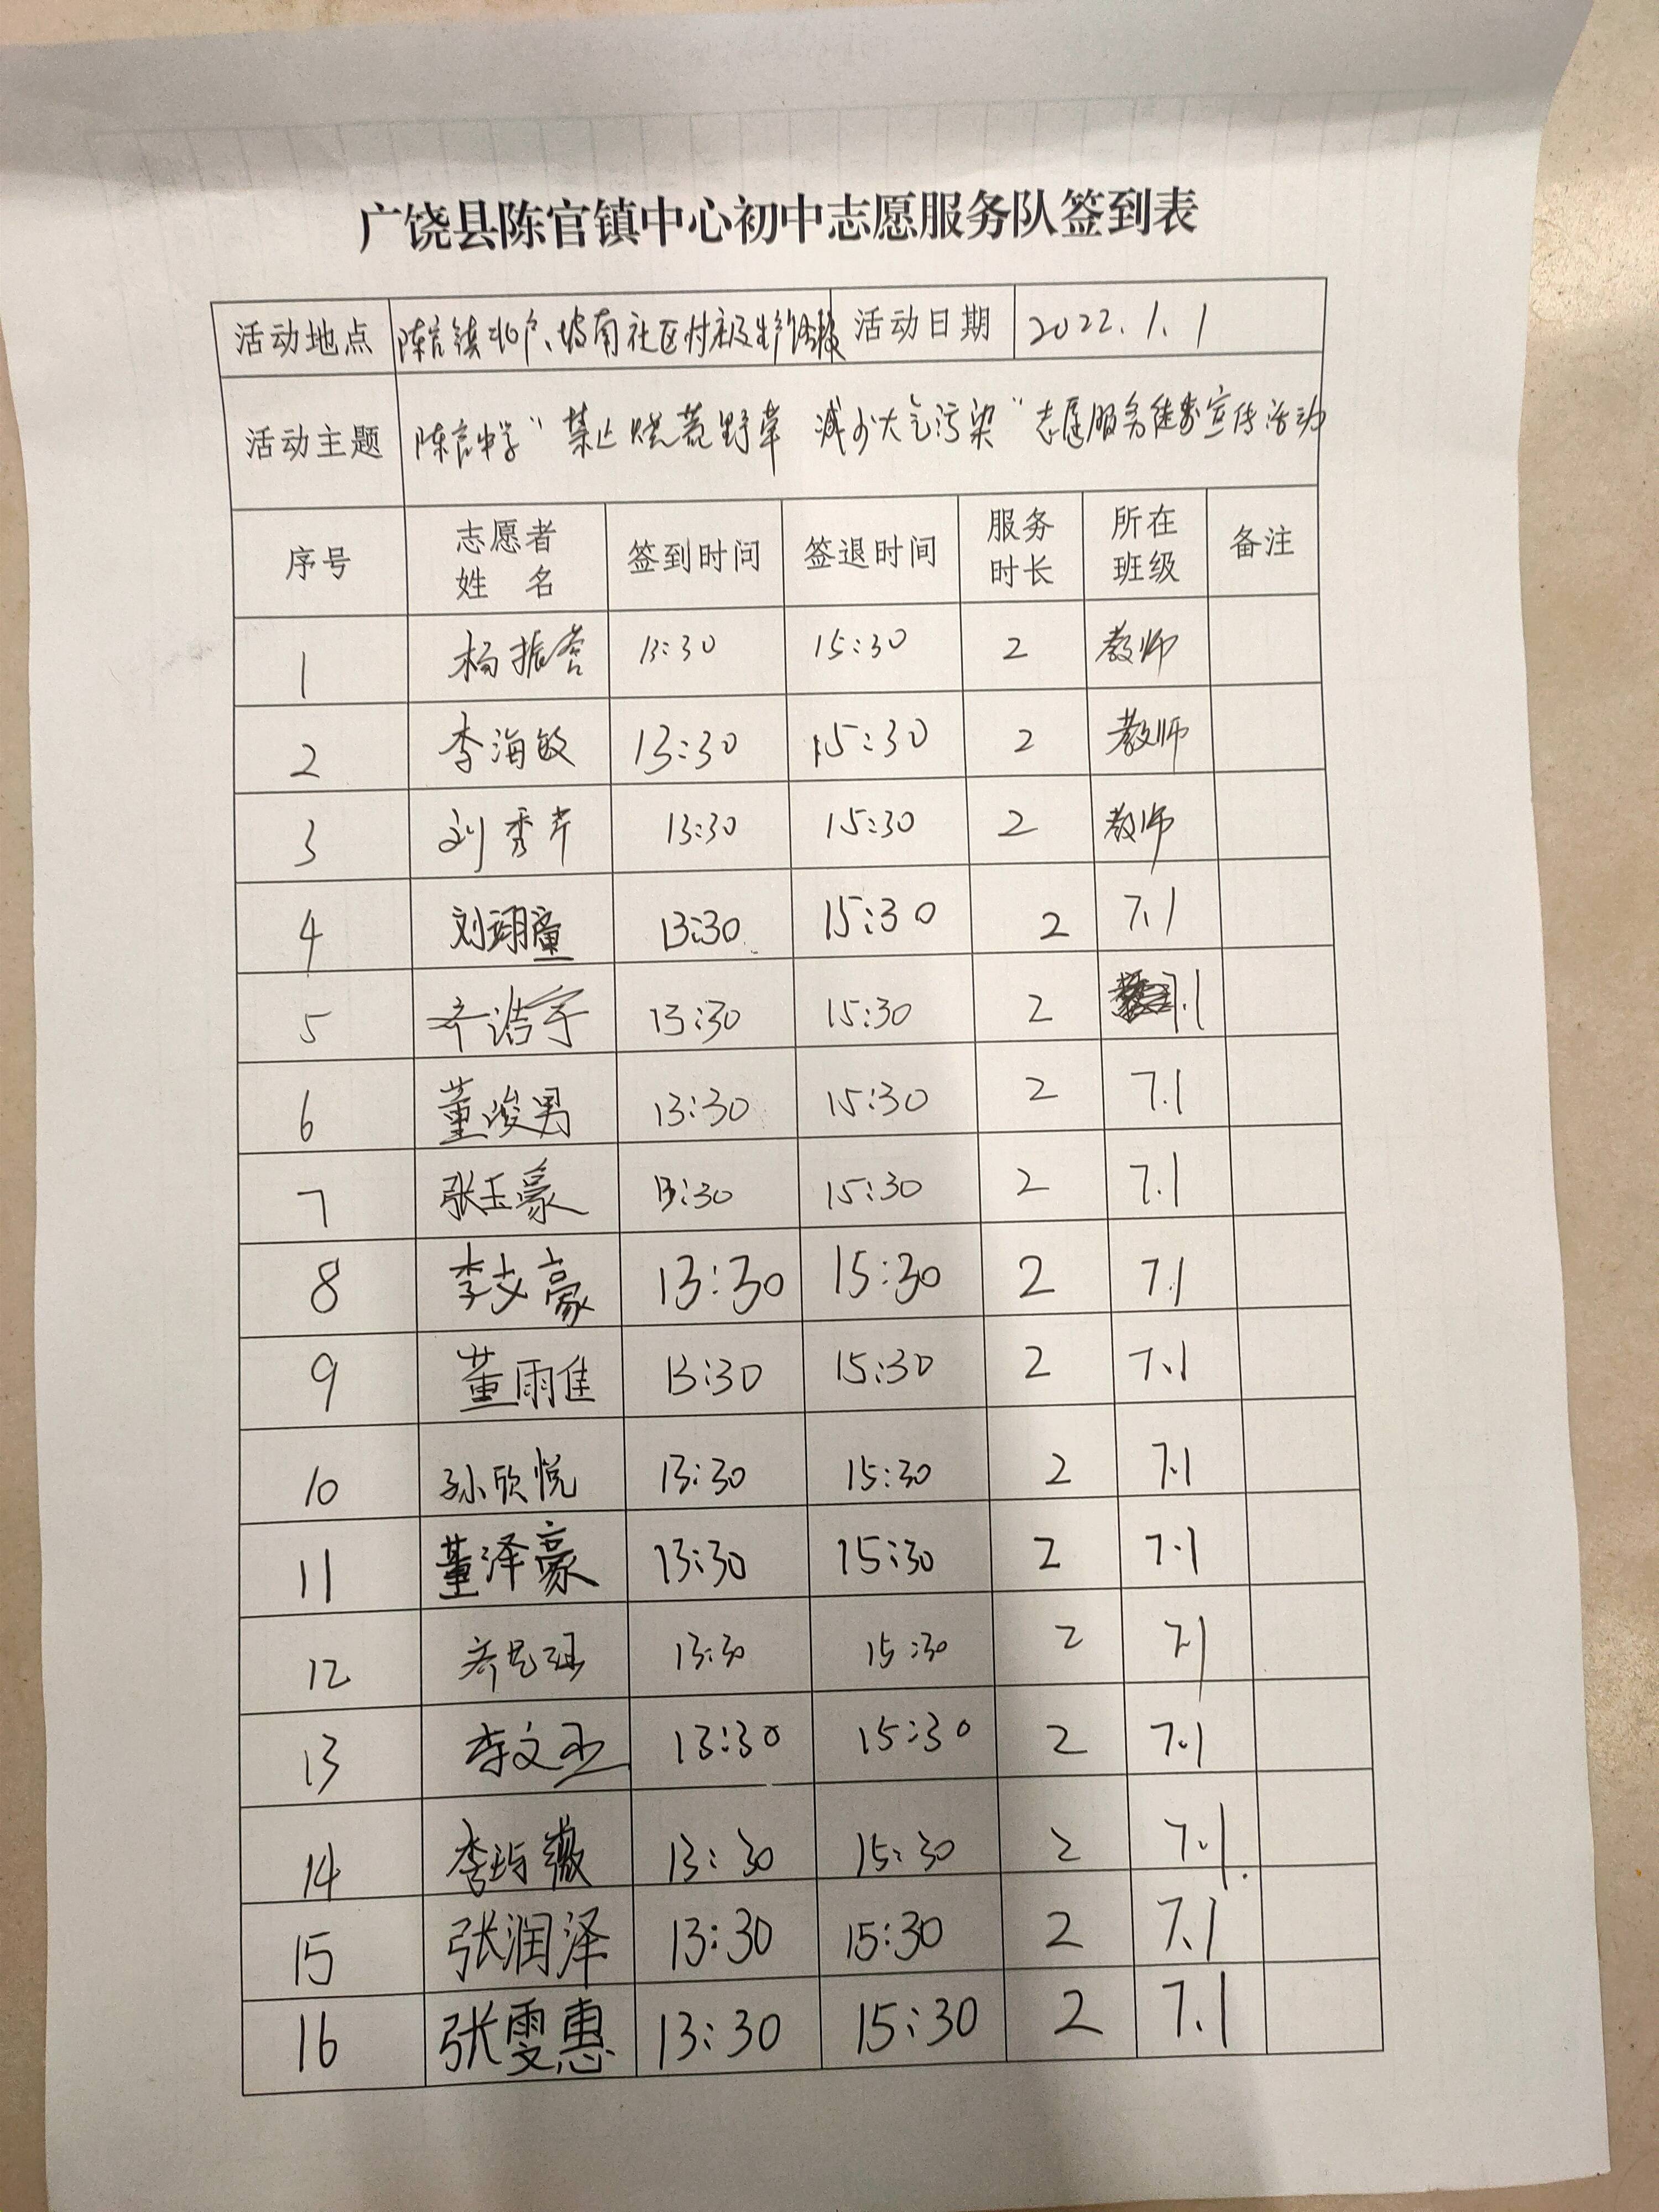 广饶县陈官镇中心初中志愿服务队签到表
活动地点 陈官镇 坡南社区村 活动日期 2022.1.1
活动主题 陈官中学“禁止烧荒野草 减少大气污染”志愿服务 宣传活动
序号 志愿者姓名 签到时间 签退时间 服务时长 所在班级 备注
1 杨振营 13:30 15:30 2 教师
2 李海敏 13:30 15:30 2 教师
3 刘秀芹 13:30 15:30 2 教师
4 刘翊童 13:30 15:30 2 7.1
5 齐浩宇 13:30 15:30 2 7.1
6 董浚男 13:30 15:30 2 7.1
7 张玉豪 13:30 15:30 2 7.1
8 李文豪 13:30 15:30 2 7.1
9 董雨佳 13:30 15:30 2 7.1
10 孙欣悦 13:30 15:30 2 7.1
11 董泽豪 13:30 15:30 2 7.1
12 齐 13:30 15:30 2 7.1
13 李文 13:30 15:30 2 7.1
14 李 薇 13:30 15:30 2 7.1
15 张润泽 13:30 15:30 2 7.1
16 张雯惠 13:30 15:30 2 7.1